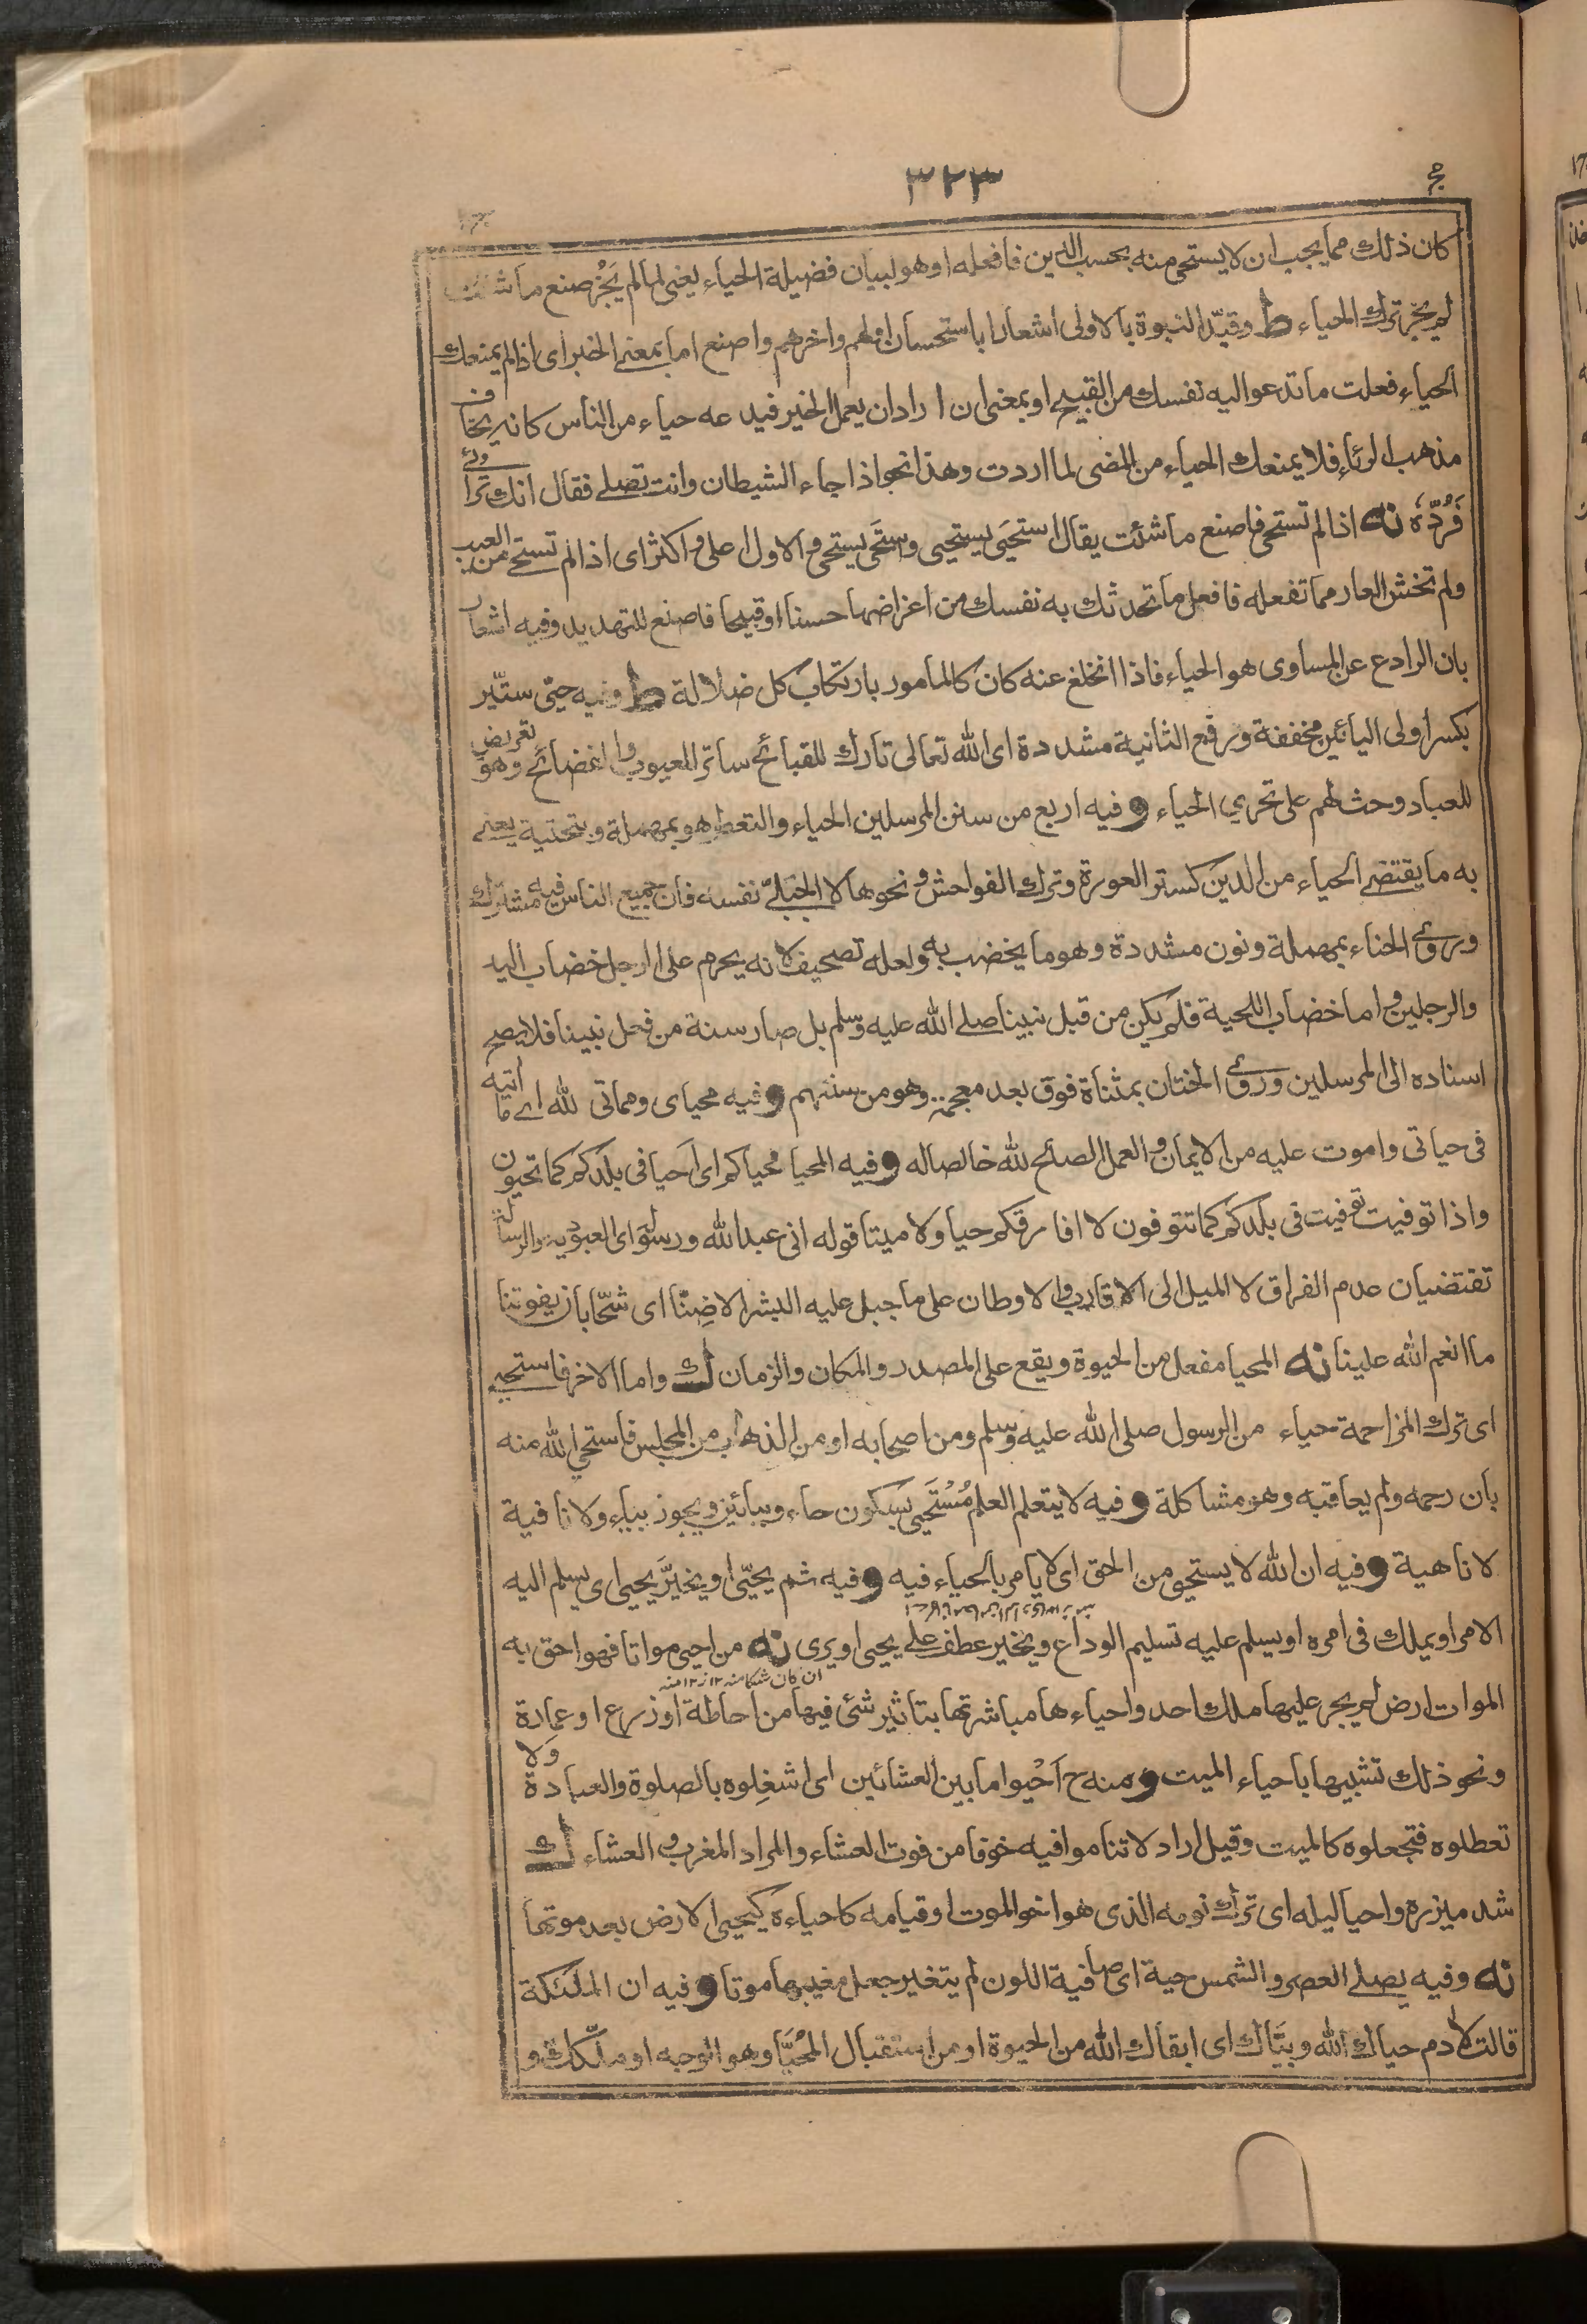 ٣٢٣
كان ذلك مما يجب ان لا يستحى منه بحسب الدين فافعله او هو لبيان فضيلة الحياء يعنى لما لم يجز صنع ما شئت
لم يجز ترك الحياء ط وقيد النبوة بالاولى اشعارا باستحسان اولهم واخرهم واصنع اما بمعنى الخبر اى اذا لم يمنعك
الحياء فعلت ما تدعو اليه نفسك من القبيح او بمعنى ان اراد ان يعمل الخير فيدعه حياء من الناس كانه يخاف
مذهب الرئاء فلا يمنعك الحياء من المضى لما اردت وهذا نحو اذا جاء الشيطان وانت تصلى فقال انك ترائى
فَرُدّهٗ نه اذا لم تستحى فاصنع ما شئت يقال استحيى يستحيى واستحى يستحى والاول اعلى واكثر اى اذا لم تستح من العيب
ولم تخش العار مما تفعله فافعل ما تحدثك به نفسك من اغراضها حسنا او قبيحا فاصنع للتهديد وفيه اشعار
بان الرادع عن المساوى هو الحياء فاذا انخلع عنه كان كالمامور بارتكاب كل ضلالة ط وفيه حيى ستّير
بكسر اولى اليائين مخففة ورفع الثانية مشددة اى الله تعالى تارك للقبائح ساتر للعيوب والفضائح وهو تعريض
للعباد وحث لهم على تحرى الحياء و فيه اربع من سنن المرسلين الحياء والتعطر هو بمهملة وبتحتية يعنى
به ما يقتضى الحياء من الدين كستر العورة وترك الفواحش ونحوها لا الجبلىّ نفسه فان جميع الناس فيه مشترك
وروى الحناء بمهملة ونون مشددة وهو ما يخضب به ولعله تصحيف لانه يحرم على الرجل خضاب اليد
والرجلين واما خضاب اللحية فلم يكن من قبل نبينا صلى الله عليه وسلم بل صار سنة من فعل نبينا فلا يصح
اسناده الى المرسلين وروى الختان بمثناة فوق بعد معجمة وهو من سننهم و فيه محياى ومماتى لله اى ما اتيه
فى حياتى واموت عليه من الايمان والعمل الصالح لله خالصا له و فيه المحيا محياكم اى احيا فى بلدكم كما تحيون
واذا توفيت توفيت فى بلدكم كما تتوفون لا افارقكم حيا ولا ميتا قوله انى عبد الله ورسوله اى العبودية والرسالة
تقتضيان عدم الفراق لا الميل الى الاقارب والاوطان على ما جبل عليه البشر الا ضِنًّا اى شحّا بان يفوتنا
ما انعم الله علينا نه المحيا مفعل من الحيوة ويقع على المصدر والمكان والزمان ك واما الاخر فاستحيى
اى ترك المزاحمة حياء من الرسول صلى الله عليه وسلم ومن اصحابه او من الذهاب من المجلس فاستحى الله منه
بان رحمه ولم يعاقبه وهو مشاكلة و فيه لا يتعلم العلم مُسْتَحيى بسكون حاء وبيائين ويجوز بياء ولا نافية
لا ناهية و فيه ان الله لا يستحى من الحق اى لا يامر بالحياء فيه و فيه ثم يحيّى او يخيّر يحيى اى يسلم اليه
الامر او يملك فى امره او يسلم عليه تسليم الوداع ويخير عطف على يحيى او يرى نه من احيى مواتا فهو احق به
الموات ارض لم يجر عليها ملك احد واحياءها مباشرتها بتاثير شئ فيها من احاطة او زرع او عمارة
ونحو ذلك تشبيها باحياء الميت و منه ح اَحْيوا ما بين العشائين اى اشغلوه بالصلوة والعبادة ولا
تعطلوه فتجعلوه كالميت وقيل اراد لا تناموا فيه خوفا من فوت العشاء والمراد المغرب والعشاء ك
شد ميزره واحيا ليله اى ترك نومه الذى هو اخو الموت او قيامه كاحياءه كيحيى الارض بعد موتها
نه وفيه يصلى العصر والشمس حية اى صافية اللون لم يتغير جعل مغيبها موتا و فيه ان الملئكة
قالت لادم حياك الله وبيّاك اى ابقاك الله من الحيوة او من استقبال المُحيَّا وهو الوجه او ملّكك و